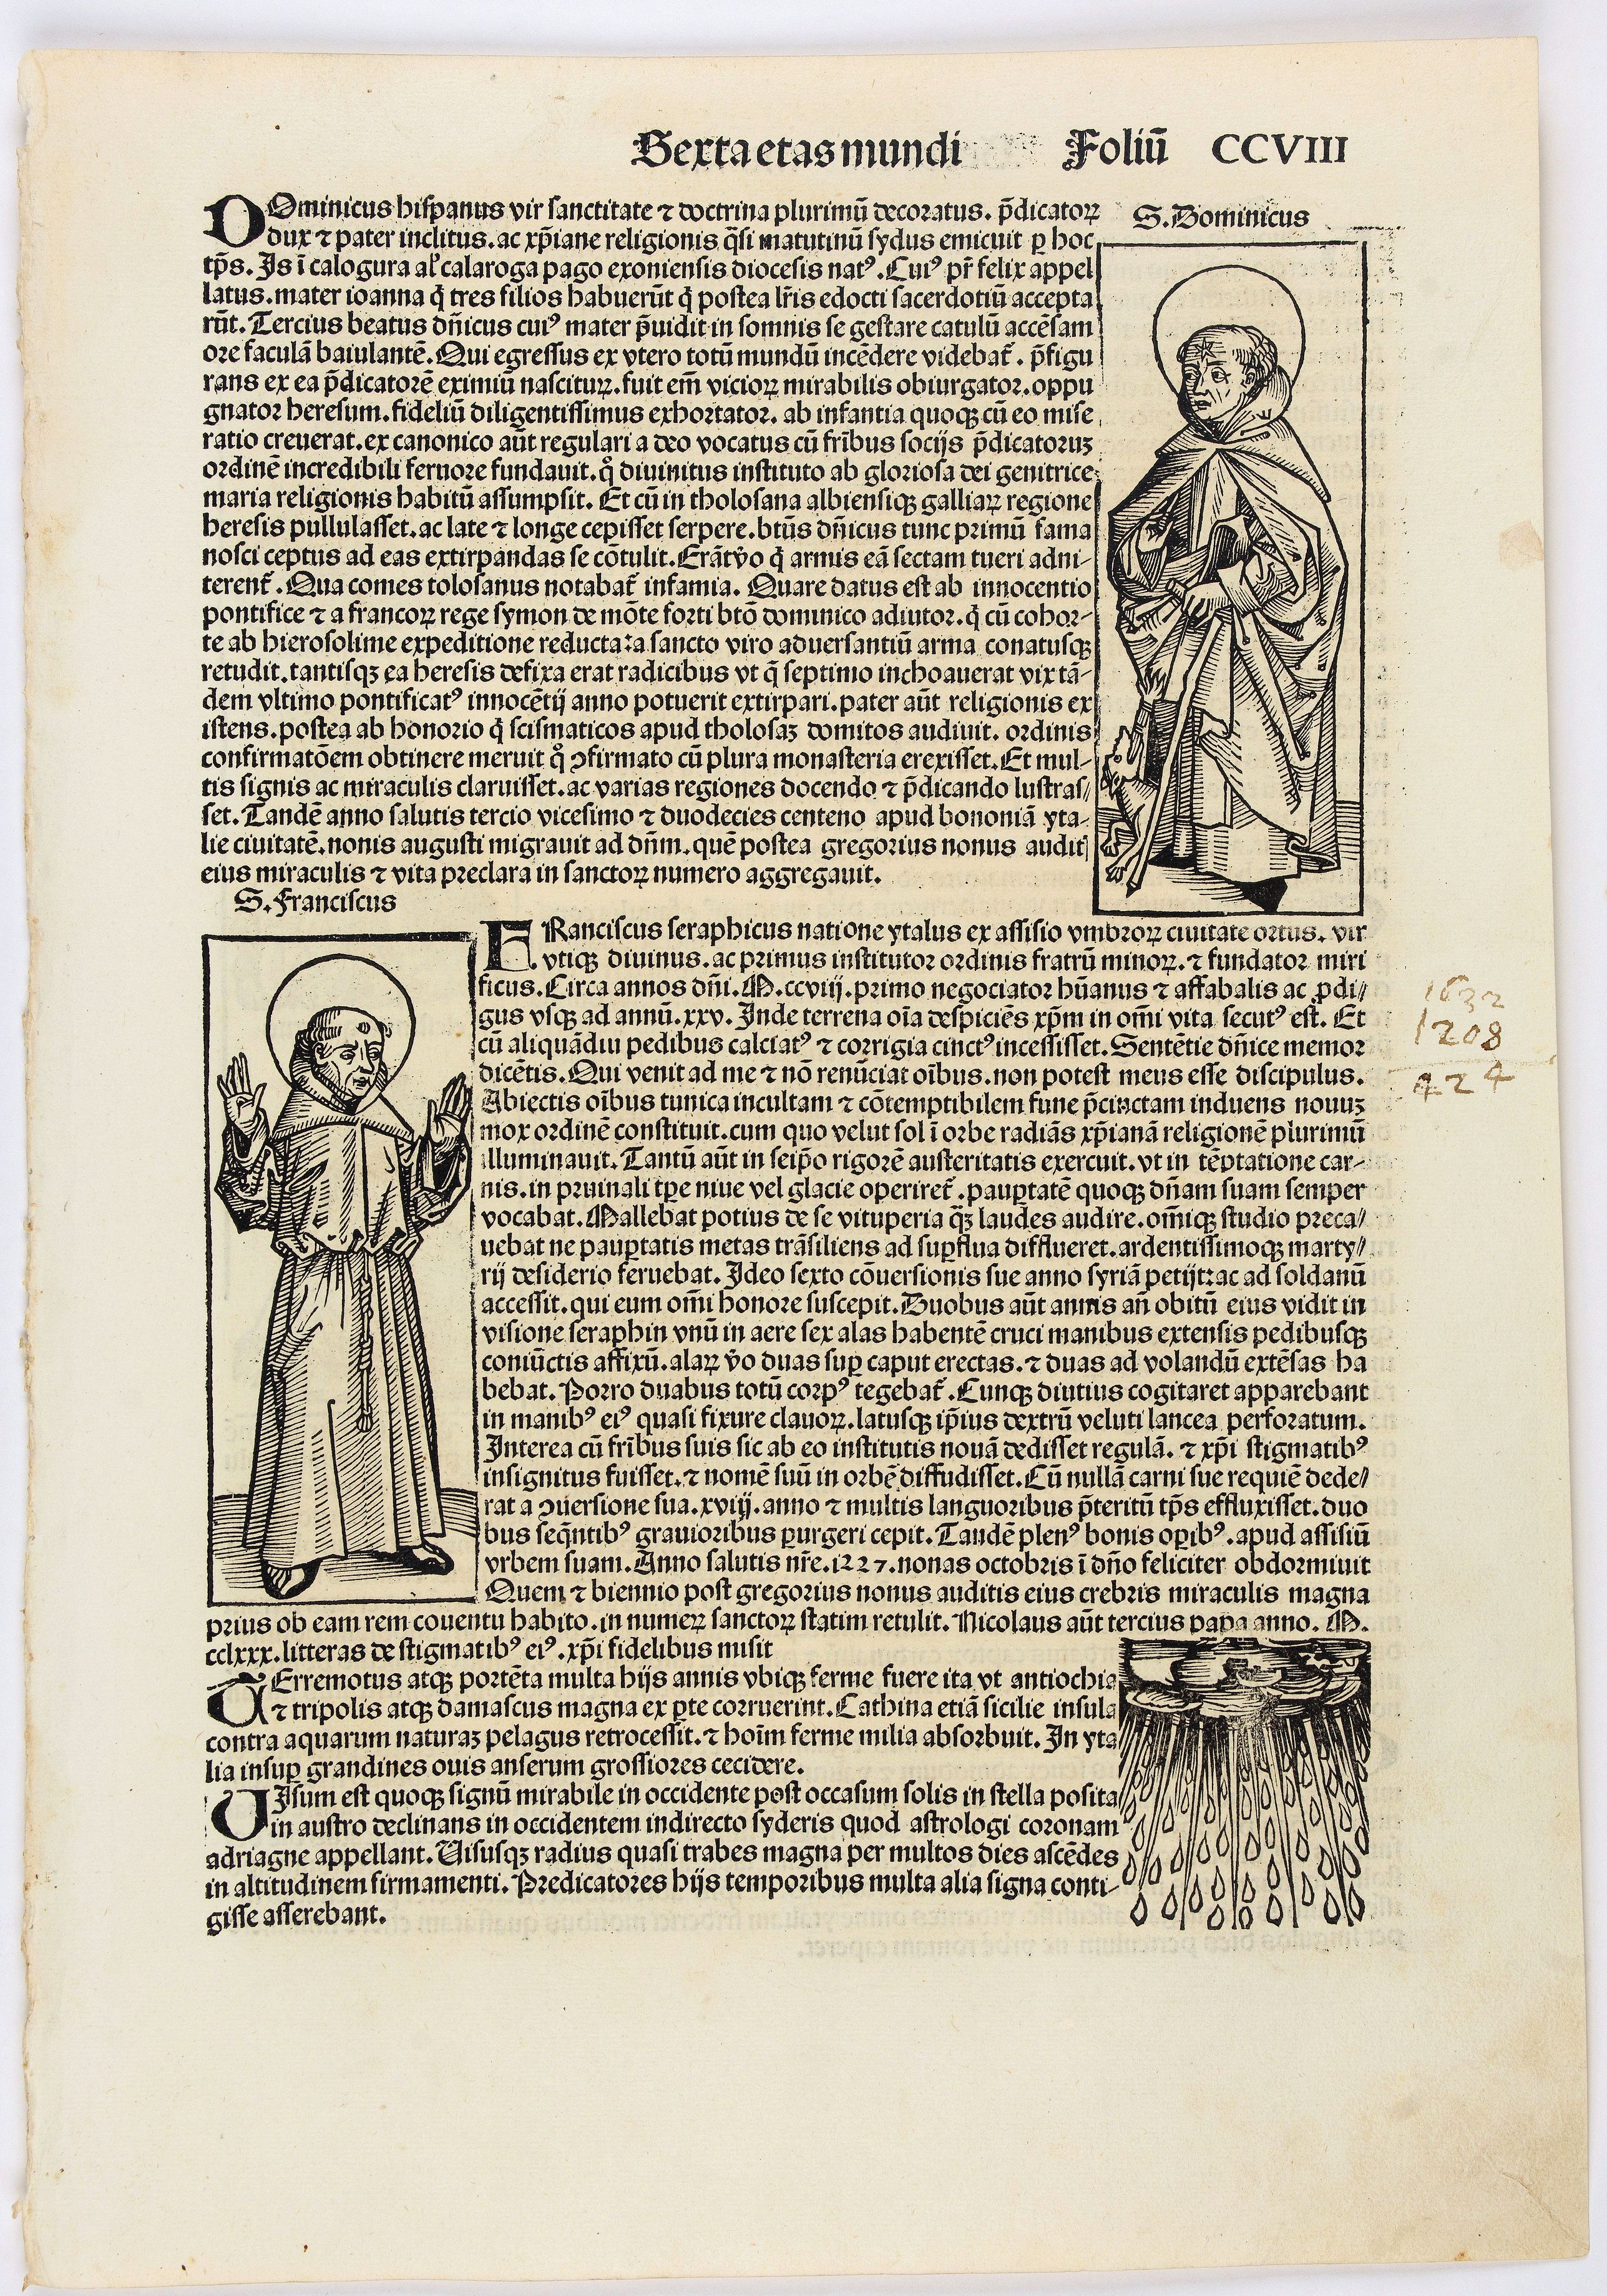 Sexta etas mundi Foliū CCVIII
DOminicus hispanus vir sanctitate ⁊ doctrina plurimū decoratus. p̄dicatoꝝ
S. Dominicus
dux ⁊ pater inclitus. ac xp̄iane religionis q̄si matutinū sydus emicuit ꝑ hoc
tp̄s. Is ī calogura al' calaroga pago exoniensis diocesis natꝰ. Cuiꝰ pr̄ felix appel
latus. mater ioanna q̇ tres filios habuerūt q̇ postea lr̄is edocti sacerdotiū accepta
rūt. Tercius beatus dn̄icus cuiꝰ mater p̄uidit in somnis se gestare catulū accēsam
ore faculā baiulantē. Qui egressus ex vtero totū mundū incēdere videbat̄. p̄figu
rans ex ea p̄dicatorē eximiū nasciturꝝ. fuit em̄ vicioꝝ mirabilis obiurgator. oppu
gnator heresum. fideliū diligentissimus exhortator. ab infantia quoqꝫ cū eo mise
ratio creuerat. ex canonico aūt regulari a deo vocatus cū fr̄ibus socijs p̄dicatoruꝫ
ordinē incredibili feruore fundauit. qͦ diuinitus instituto ab gloriosa dei genitrice
maria religionis habitū assumpsit. Et cū in tholosana albiensiqꝫ galliaꝝ regione
heresis pullulasset. ac late ⁊ longe cepisset serpere. btūs dn̄icus tunc primū fama
nosci ceptus ad eas extirpandas se cōtulit. Erāt v̄o q̇ armis eā sectam tueri adni-
terent̄. Qua comes tolosanus notabat̄ infamia. Quare datus est ab innocentio
pontifice ⁊ a francoꝝ rege symon de mōte forti btō dominico adiutor. q̇ cū cohor-
te ab hierosolime expeditione reducta: a sancto viro aduersantiū arma conatusqꝫ
retudit. tantisqꝫ ea heresis defixa erat radicibus vt q̄ septimo inchoauerat vix tā-
dem vltimo pontificatꝰ innocētij anno potuerit extirpari. pater aūt religionis ex
istens. postea ab honorio q̇ scismaticos apud tholosaꝫ domitos audiuit. ordinis
confirmatōem obtinere meruit qͦ ꝯfirmato cū plura monasteria erexisset. Et mul-
tis signis ac miraculis claruisset. ac varias regiones docendo ⁊ p̄dicando lustras/
set. Tandē anno salutis tercio vicesimo ⁊ duodecies centeno apud bononiā yta-
lie ciuitatē. nonis augusti migrauit ad dn̄m. quē postea gregorius nonus auditꝭ
eius miraculis ⁊ vita preclara in sanctoꝝ numero aggregauit.
S. Franciscus
FRanciscus seraphicus natione ytalus ex assisio vmbroꝝ ciuitate ortus. vir
vtiqꝫ diuinus. ac primus institutor ordinis fratrū minoꝝ. ⁊ fundator miri
ficus. Circa annos dn̄i. M. ccviij. primo negociator hūanus ⁊ affabalis ac ꝓdi/
gus vsqꝫ ad annū. xxv. Inde terrena oīa despiciēs xp̄m in om̄i vita secutꝰ est. Et
cū aliquādiu pedibus calciatꝰ ⁊ corrigia cinctꝰ incessisset. Sentētie dn̄ice memor
dicētis. Qui venit ad me ⁊ nō renūciat oībus. non potest meus esse discipulus.
Abiectis oībus tunica incultam ⁊ cōtemptibilem fune p̄cinctam induens nouuꝫ
mox ordinē constituit. cum quo velut sol ī orbe radiās xp̄ianā religionē plurimū
illuminauit. Tantū aūt in seip̄o rigorē austeritatis exercuit. vt in tēptatione car-
nis. in pruinali tp̄e niue vel glacie operiret̄. pauꝑtatē quoqꝫ dn̄am suam semper
vocabat. Mallebat potius de se vituperia q̄ꝫ laudes audire. om̄iqꝫ studio preca/
uebat ne pauꝑtatis metas trāsiliens ad suꝑflua difflueret. ardentissimoqꝫ marty/
rij desiderio feruebat. Ideo sexto cōuersionis sue anno syriā petijt: ac ad soldanū
accessit. qui eum om̄i honore suscepit. Duobus aūt annis an̄ obitū eius vidit in
visione seraphin vnū in aere sex alas habentē cruci manibus extensis pedibusqꝫ
coniūctis affixū. alaꝝ v̄o duas suꝑ caput erectas. ⁊ duas ad volandū extēsas ha
bebat. Porro duabus totū corpꝰ tegebat̄. Cunqꝫ diutius cogitaret apparebant
in manibꝰ eiꝰ quasi fixure clauoꝝ. latusqꝫ ip̄ius dextrū veluti lancea perforatum.
Interea cū fr̄ibus suis sic ab eo institutis nouā dedisset regulā. ⁊ xp̄i stigmatibꝰ
insignitus fuisset. ⁊ nomē suū in orbē diffudisset. Cū nullā carni sue requiē dede/
rat a ꝯuersione sua. xviij. anno ⁊ multis languoribus p̄teritū tp̄s effluxisset. duo
bus seq̄ntibꝰ grauioribus purgeri cepit. Tandē plenꝰ bonis oꝑibꝰ. apud assisiū
vrbem suam. Anno salutis nr̄e. 1227. nonas octobris ī dn̄o feliciter obdormiuit
Quem ⁊ biennio post gregorius nonus auditis eius crebris miraculis magna
prius ob eam rem couentu habito. in numeꝝ sanctoꝝ statim retulit. Nicolaus aūt tercius papa anno. M.
cclxxx. litteras de stigmatibꝰ eiꝰ. xp̄i fidelibus misit
TErremotus atqꝫ portēta multa hijs annis vbiqꝫ ferme fuere ita vt antiochia
⁊ tripolis atqꝫ damascus magna ex ꝑte corruerint. Cathina etiā sicilie insula
contra aquarum naturaꝫ pelagus retrocessit. ⁊ hoīm ferme milia absorbuit. In yta
lia insuꝑ grandines ouis anserum grossiores cecidere.
VIsum est quoqꝫ signū mirabile in occidente post occasum solis in stella posita
in austro declinans in occidentem indirecto syderis quod astrologi coronam
adriagne appellant. Uisusqꝫ radius quasi trabes magna per multos dies ascēdes
in altitudinem firmamenti. Predicatores hijs temporibus multa alia signa conti-
gisse asserebant.
1632
1208
424